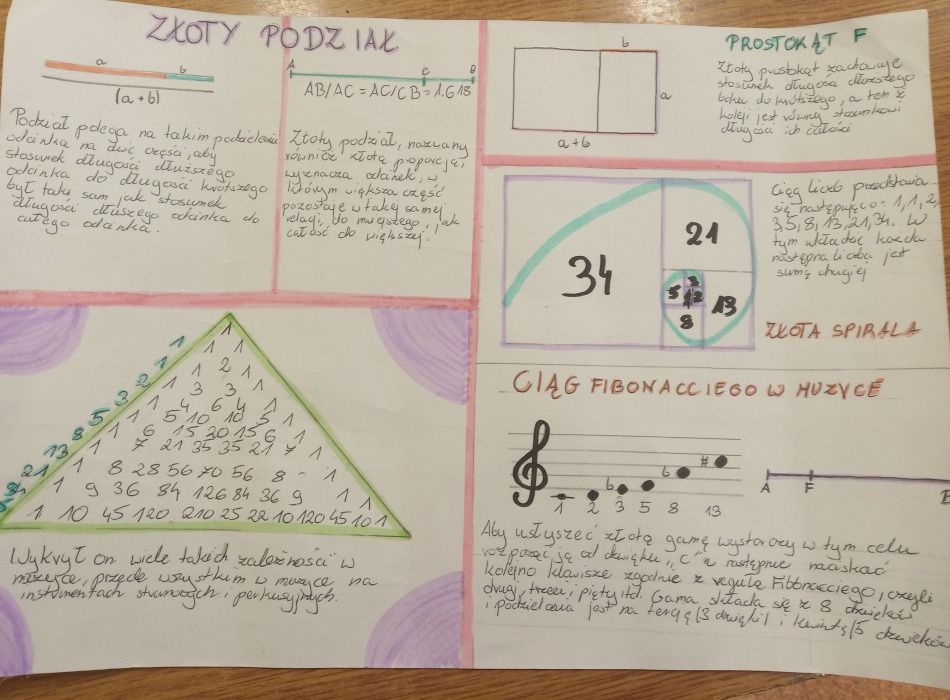 ZŁOTY PODZIAŁ
a b
(a+b)
Podział polega na takim podzieleniu
odcinka na dwie części, aby
stosunek długości dłuższego
odcinka do długości krótszego
był taki sam jak stosunek
długości dłuższego odcinka do
całego odcinka.
A C B
AB/AC = AC/CB = 1.618
Złoty podział, nazwany
również złotą proporcją,
wyznacza odcinek, w
którym większa część
pozostaje w takiej samej
relacji, do mniejszego, jak
całość do większej.
b
a
a+b
PROSTOKĄT F
Złoty prostokąt zachowuje
stosunek długości dłuższego
boku do krótszego, a ten z
kolei jest równy stosunkowi
długości ich całości
34
21
5 3
1 2
8
13
Ciąg liczb przedstawia
się następująco: 1, 1, 2,
3, 5, 8, 13, 21, 34. W
tym układzie każda
następna liczba jest
sumą drugiej
ZŁOTA SPIRALA
1
1
2
3
5
8
13
21
34
1
1 1
1 2 1
1 3 3 1
1 4 6 4 1
1 5 10 10 5 1
1 6 15 20 15 6 1
1 7 21 35 35 21 7 1
1 8 28 56 70 56 8 1
1 9 36 84 126 84 36 9 1
1 10 45 120 210 25 22 10 120 45 10 1
Wykrył on wiele takich zależności w
muzyce, przede wszystkim w muzyce na
instrumentach strunowych i perkusyjnych.
CIĄG FIBONACCIEGO W MUZYCE
b b #
1 2 3 5 8 13
A F B
Aby usłyszeć złotą gamę wystarczy w tym celu
rozpocząć ją od dźwięku „c" a następnie naciskać
kolejno klawisze zgodnie z regułą Fibbonacciego, czyli
drugi, trzeci, piąty itd. Gama składa się z 8 dźwięków
i podzielona jest na tercję (3 dźwięki) i kwintę (5 dźwięków